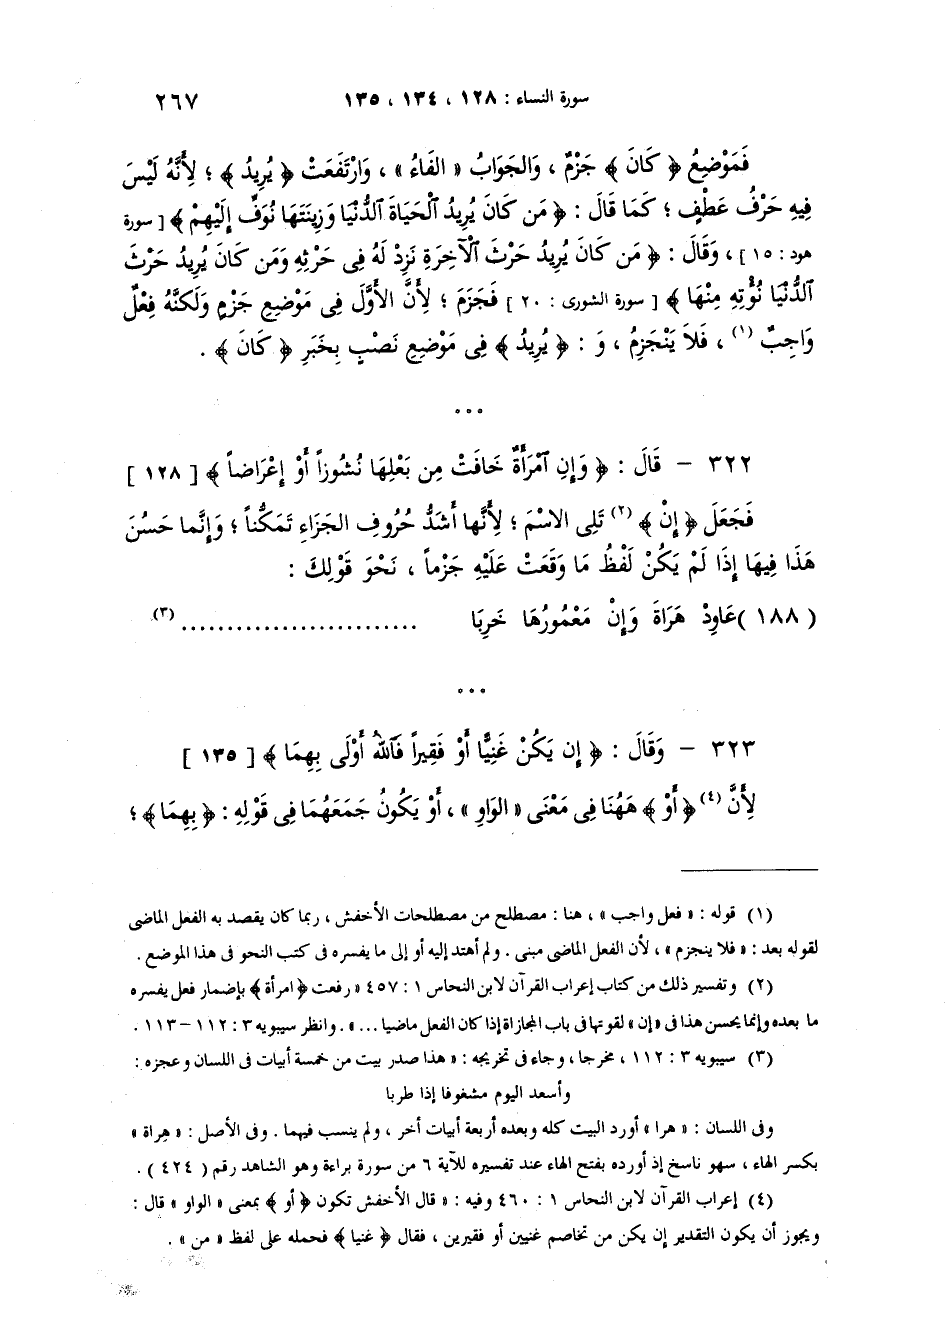 سورة النساء : ١٢٨ ، ١٣٤ ، ١٣٥ ٢٦٧
فَمَوْضِعُ ﴿ كَانَ ﴾ جَزْمٌ ، وَالجَوَابُ « الفَاءُ » ، وَارْتَفَعَتْ ﴿ يُرِيدُ ﴾ ؛ لِأَنَّهُ لَيْسَ
فِيهِ حَرْفُ عَطْفٍ ؛ كَمَا قَالَ : ﴿ مَن كَانَ يُرِيدُ ٱلْحَيَاةَ ٱلدُّنْيَا وَزِينَتَهَا نُوَفِّ إِلَيْهِمْ ﴾ [ سورة
هود : ١٥ ] ، وَقَالَ : ﴿ مَن كَانَ يُرِيدُ حَرْثَ ٱلْآخِرَةِ نَزِدْ لَهُ فِى حَرْثِهِ وَمَن كَانَ يُرِيدُ حَرْثَ
ٱلدُّنْيَا نُؤْتِهِ مِنْهَا ﴾ [ سورة الشورى : ٢٠ ] فَجَزَمَ ؛ لِأَنَّ الأَوَّلَ فِى مَوْضِعِ جَزْمٍ وَلَكنَّهُ فِعْلٌ
وَاجِبٌ (١) ، فَلَا يَنْجَزِمُ ، وَ : ﴿ يُرِيدُ ﴾ فِى مَوْضِعِ نَصْبٍ بِخَبَرِ ﴿ كَانَ ﴾ .
٠٠٠
٣٢٢ – قَالَ : ﴿ وَإِنِ ٱمْرَأَةٌ خَافَتْ مِن بَعْلِهَا نُشُوزاً أَوْ إِعْرَاضاً ﴾ [ ١٢٨ ]
فَجَعَلَ ﴿ إِنْ ﴾ (٢) تَلِى الاسْمَ ؛ لِأَنَّها أَشَدُّ حُرُوفِ الجَزَاءِ تَمَكُّناً ؛ وَإِنَّما حَسُنَ
هَذَا فِيهَا إِذَا لَمْ يَكُنْ لَفْظُ مَا وَقَعَتْ عَلَيْهِ جَزْماً ، نَحْوَ قَوْلِكَ :
( ١٨٨ )عَاوِدْ هَرَاةَ وَإِنْ مَعْمُورُهَا خَرِبَا .......................... (٣)
٠٠٠
٣٢٣ – وَقَالَ : ﴿ إِن يَكُنْ غَنِيًّا أَوْ فَقِيراً فَٱللهُ أَوْلَى بِهِمَا ﴾ [ ١٣٥ ]
لِأَنَّ (٤) ﴿ أَوْ ﴾ هَهُنَا فِى مَعْنَى « الوَاوِ » ، أَوْ يَكُونُ جَمَعَهُمَا فِى قَوْلِهِ : ﴿ بِهِمَا ﴾ ؛
(١) قوله : « فعل واجب » ، هنا : مصطلح من مصطلحات الأخفش ، ربما كان يقصد به الفعل الماضى
لقوله بعد : « فلا ينجزم » ، لأن الفعل الماضى مبنى . ولم أهتد إليه أو إلى ما يفسره فى كتب النحو فى هذا الموضع .
(٢) وتفسير ذلك من كتاب إعراب القرآن لابن النحاس ١ : ٤٥٧ « رفعت ﴿ امرأة ﴾ بإضمار فعل يفسره
ما بعده وإنما يحسن هذا فى « إن » لقوتها فى باب المجازاة إذا كان الفعل ماضيا ... » . وانظر سيبويه ٣ : ١١٢ – ١١٣ .
(٣) سيبويه ٣ : ١١٢ ، مخرجا ، وجاء فى تخريجه : « هذا صدر بيت من خمسة أبيات فى اللسان وعجزه :
وأسعد اليوم مشغوفا إذا طربا
وفى اللسان : « هرا » أورد البيت كله وبعده أربعة أبيات أخر ، ولم ينسب فيهما . وفى الأصل : « هِراة »
بكسر الهاء ، سهو ناسخ إذ أورده بفتح الهاء عند تفسيره للآية ٦ من سورة براءة وهو الشاهد رقم ( ٤٢٤ ) .
(٤) إعراب القرآن لابن النحاس ١ : ٤٦٠ وفيه : « قال الأخفش تكون ﴿ أو ﴾ بمعنى « الواو » قال :
ويجوز أن يكون التقدير إن يكن من تخاصم غنيين أو فقيرين ، فقال ﴿ غنيا ﴾ فحمله على لفظ « من » .